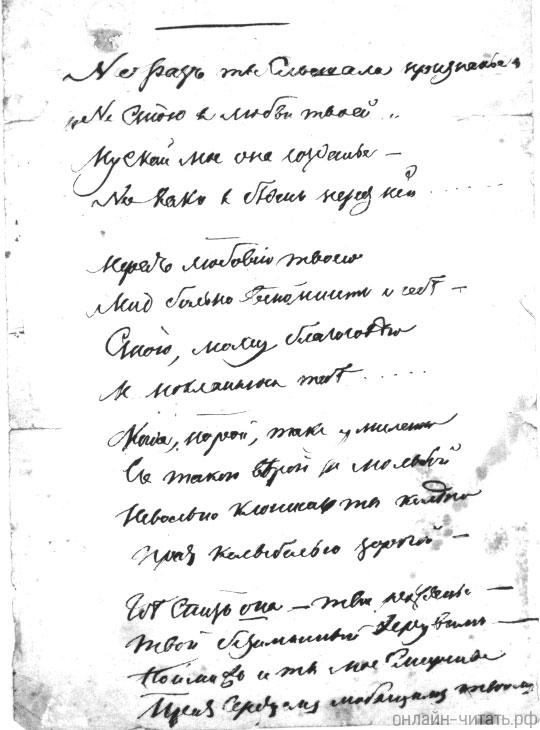 Не разъ ты слышала признанье
"Не стою я любви твоей"..
Пускай мое она созданье —
Но какъ я бѣденъ передъ ней......
Передъ любовію твоею
Мнѣ больно вспомнить о себѣ —
Стою, молчу, благоговѣю
И поклаяюсь тебѣ.....
Когда, порой, такъ умиленно
Съ такою вѣрой и мольбой
Невольно клонишь ты колѣно
Предъ колыбелью дорогой —
Гдѣ спитъ она — твое рожденье —
Твой безъимянный Херувимъ —
Пойми жъ и ты мое смиренье
Предъ сердцемъ любящимъ твоимъ
онлайн-читать.рф